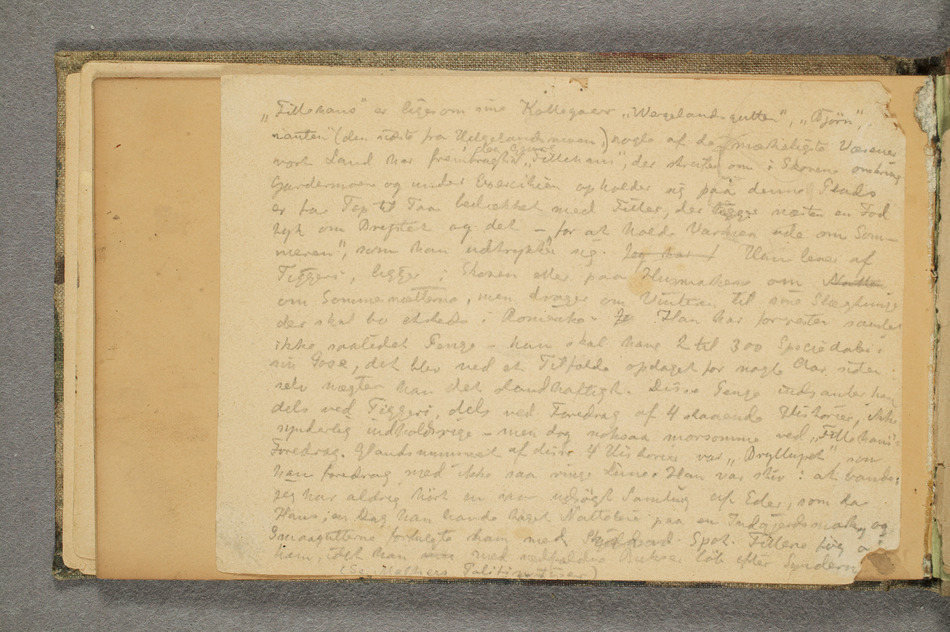 „Fillehans" er ligesom sine Kollegaer „Wergelandsgutten", „Björn
nanten" (den sidste fra Helgelandsmoen,) nogle af de mærkeligste Væsener
vort Land har frembragt. „Fillehans", der streifer om i Skovene omkring
Gardermoen og under Exercitien opholder sig paa denne Plads
er fra Top til Taa bedækket med Filler, der ligger næsten en Fod
tyk om Brystet og det – „for at holde Varmen ude om Som-
meren", som han udtrykte sig. Jeg har Han lever af
Tiggeri, ligger i Skoven eller paa Husmathene om Natten
om Sommernætterne, men drager om Vinteren til sine Slægtninge
der skal bo etsteds i Romerike. Han har forresten samlet
ikke saa lidet Penge – han skal have 2 til 300 Speciedaler i
sin Pose, det blev ved et Tilfælde opdaget for nogle Aar siden
selv nægter han det standhaftigt. Disse Penge indsamler han
dels ved Tiggeri, dels ved Foredrag af 4 staaende Historier, ikke
synderlig indholdsrige – men dog noksaa morsomme ved „Fillehans's
Foredrag. Glandsnummeret af disse 4 Historier var „Bryllupet" som
han foredrog med ikke saa ringe Lune. Han var stiv i at bande;
jeg har aldrig hört en mer udsögt Samling af Eder, som da
Hans, en Dag han havde taget Natteleie paa en Indgjerdsmark, og
Smaagutterne forfulgte ham med Spot. Fillene fög af
ham, idet han med løb efter Synderne